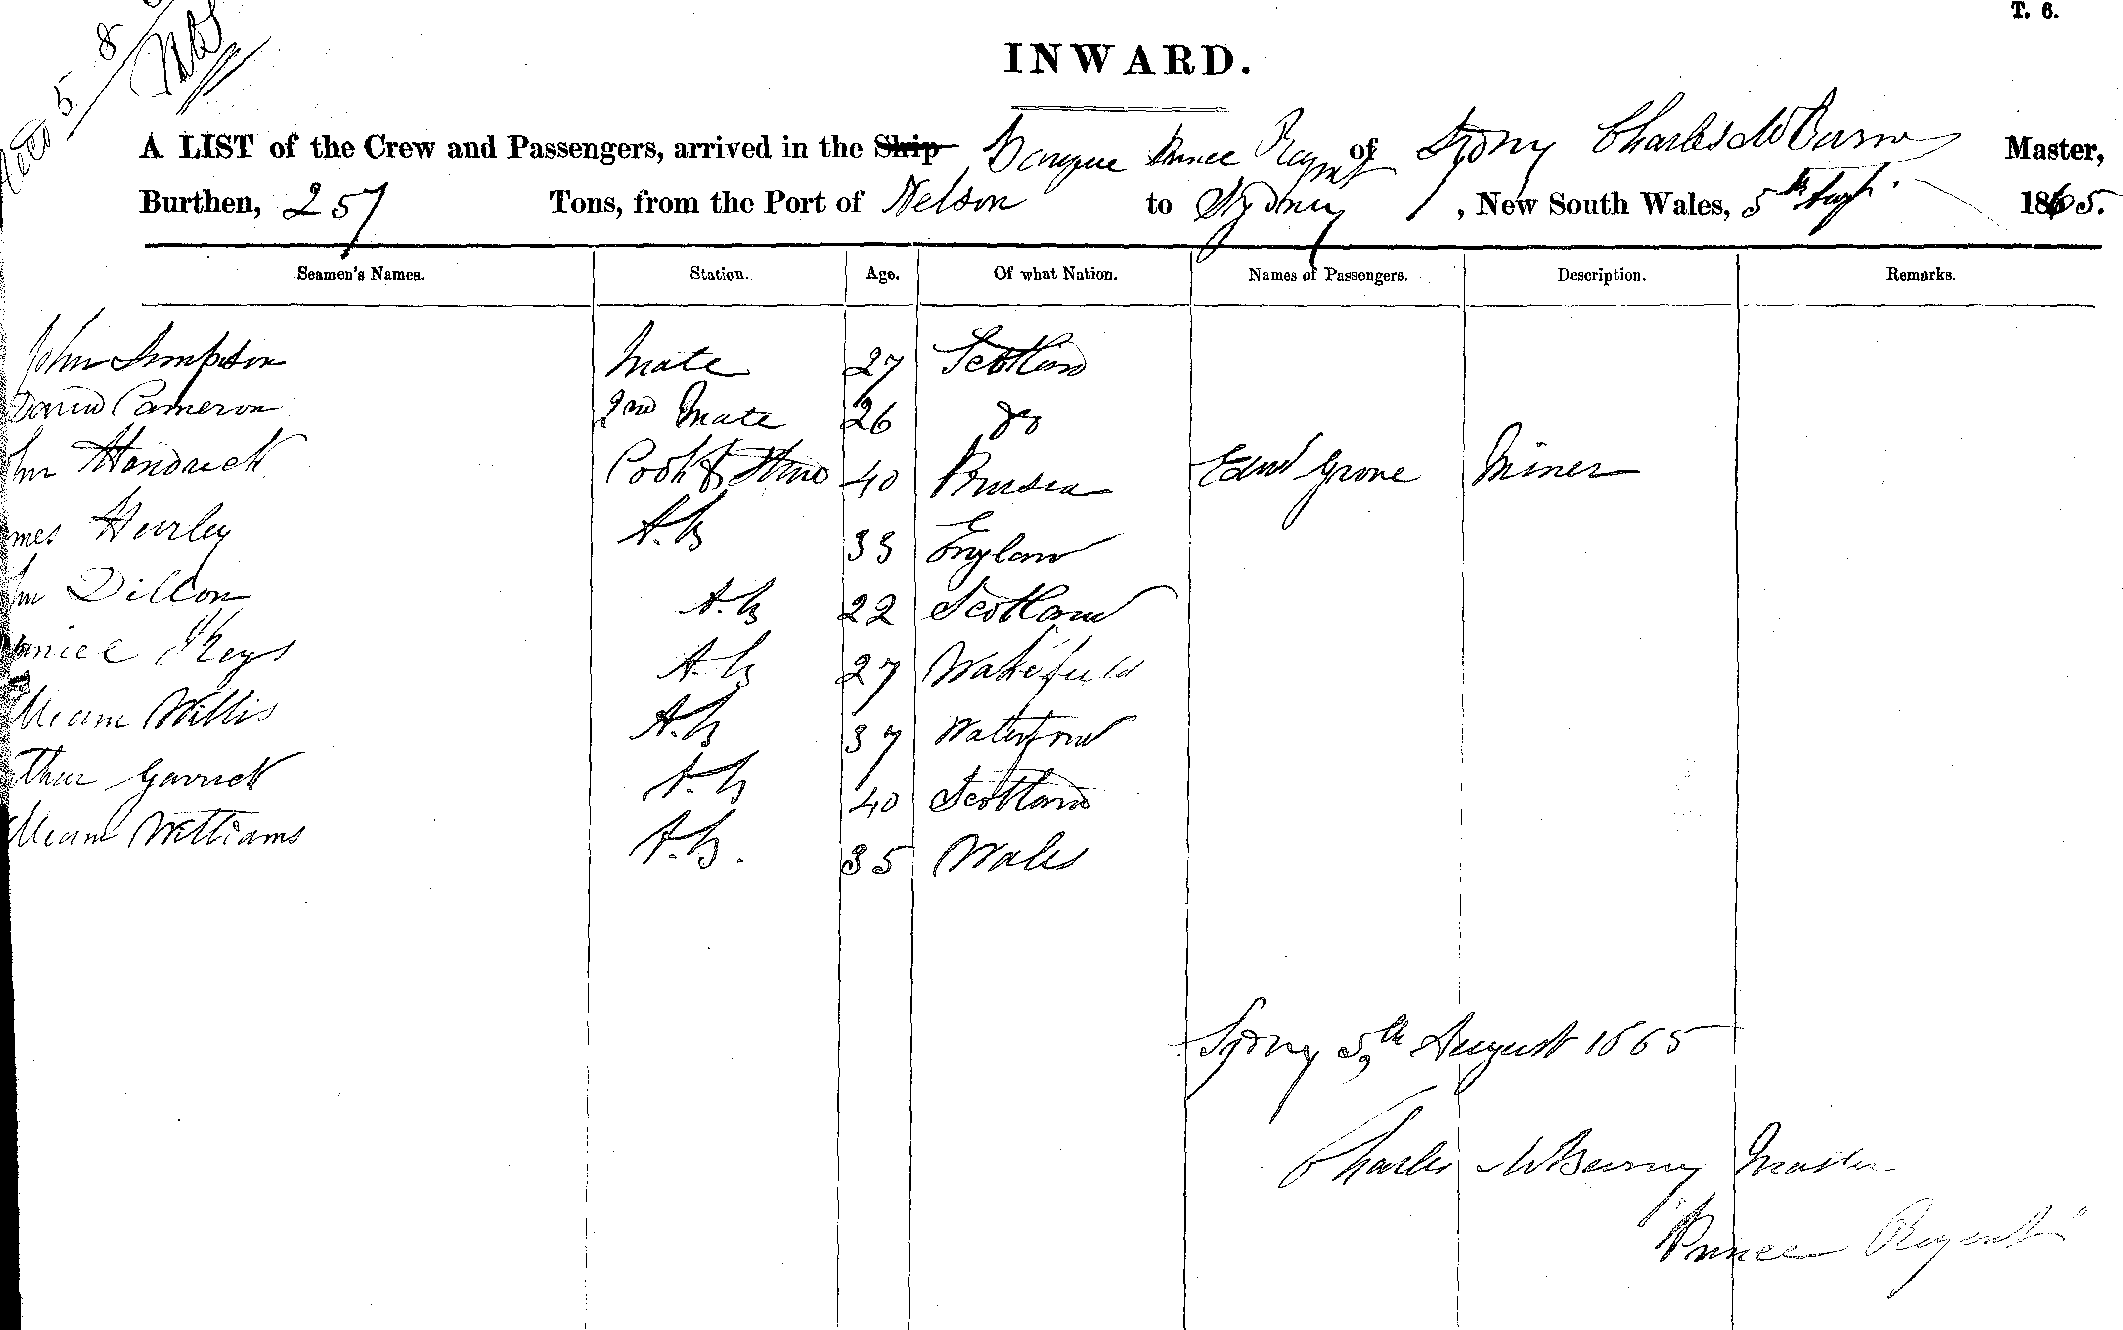 T. 6.
5/8
INWARD.
A LIST of the Crew and Passengers, arrived in the Ship Barque Prince Regent of Sydney Charles McBurny Master,
Burthen, 257 Tons, from the Port of Nelson to Sydney, New South Wales, 5th Augt. 1865.
Seamen's Names. Station. Age. Of what Nation. Names of Passengers. Description. Remarks.
John Simpson Mate 27 Scotland
David Cameron 2nd Mate 26 Do
hn Hendrick Cook & Stewd 40 Prussia Edwd Grove Miner
mes Hurley A.B 33 England
hn Dillon A.B 22 Scotland
aniel Keys A.B 27 Wakefield
lliam Willis A.B 37 Waterford
thur Garrick A.B 40 Scotland
lliam Williams A.B. 35 Wales
Sydney 5th August 1865
Charles McBurny Master
"Prince Regent"